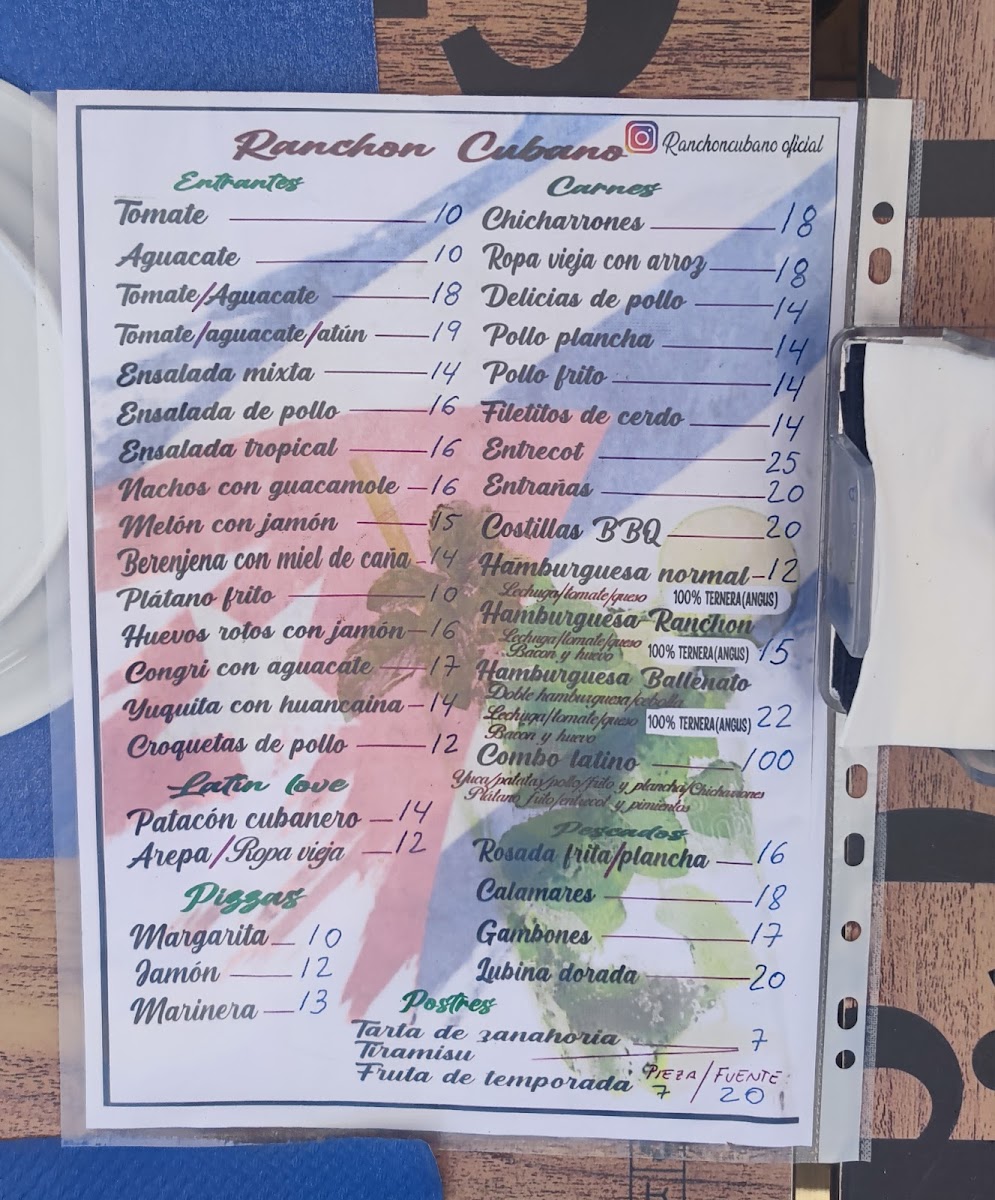 Ranchon Cubano
Ranchoncubano oficial
Entrantes
Tomate 10
Aguacate 10
Tomate/Aguacate 18
Tomate/aguacate/atún 19
Ensalada mixta 14
Ensalada de pollo 16
Ensalada tropical 16
Nachos con guacamole 16
Melón con jamón 15
Berenjena con miel de caña 14
Plátano frito 10
Huevos rotos con jamón 16
Congri con aguacate 17
Yuquita con huancaina 14
Croquetas de pollo 12
Latin love
Patacón cubanero 14
Arepa/Ropa vieja 12
Pizzas
Margarita 10
Jamón 12
Marinera 13
Carnes
Chicharrones 18
Ropa vieja con arroz 18
Delicias de pollo 14
Pollo plancha 14
Pollo frito 14
Filetitos de cerdo 14
Entrecot 25
Entrañas 20
Costillas BBQ 20
Hamburguesa normal 12
Lechuga/tomate/queso 100% TERNERA(ANGUS)
Hamburguesa Ranchon
Lechuga/tomate/queso
Bacon y huevo 100% TERNERA(ANGUS) 15
Hamburguesa Ballenato
Doble hamburguesa/cebolla
Lechuga/tomate/queso 100% TERNERA(ANGUS) 22
Bacon y huevo
Combo latino 100
Yuca/patatas/pollo/frito y plancha/Chicharrones
Plátano frito/entrecot y pimientos
Pescados
Rosada frita/plancha 16
Calamares 18
Gambones 17
Lubina dorada 20
Postres
Tarta de zanahoria 7
Tiramisu
Fruta de temporada PIEZA/FUENTE
7 20